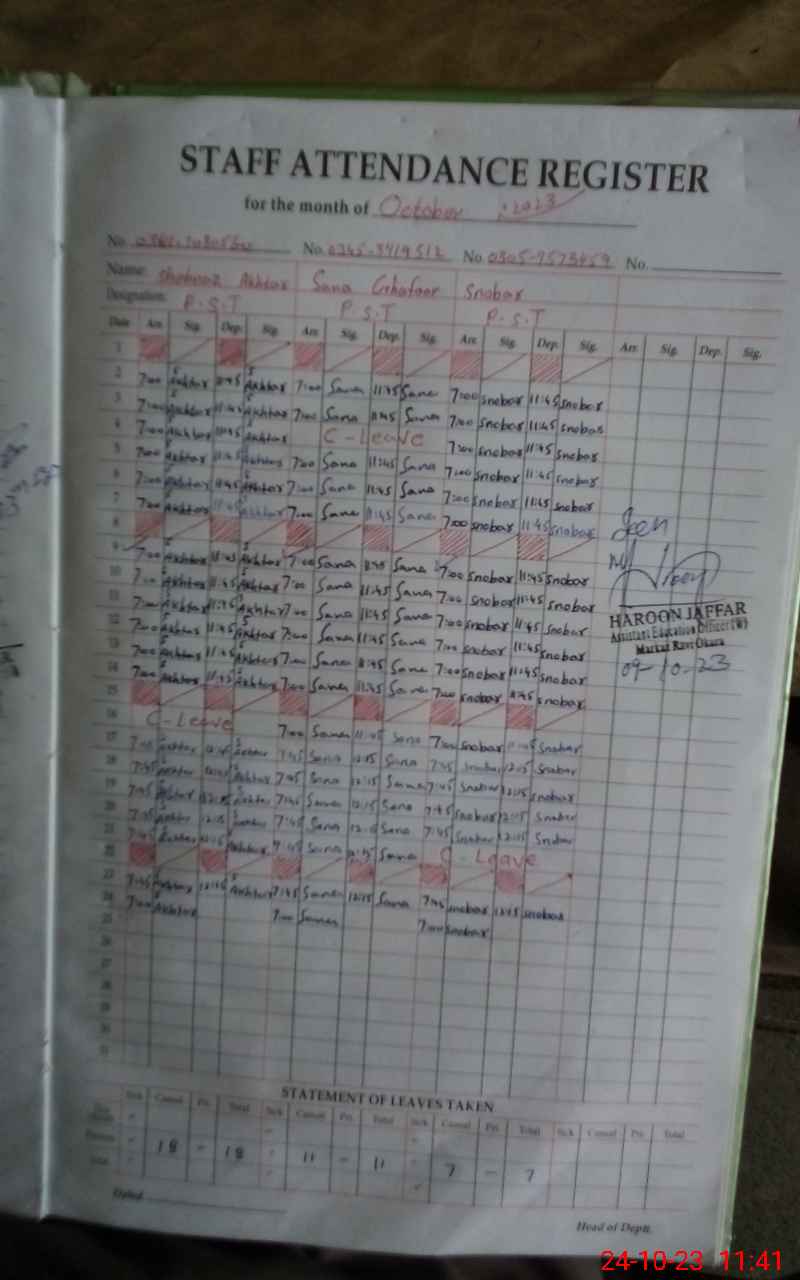 STAFF ATTENDANCE REGISTER
for the month of October 2023
No. No. 0345-3419512 No. 0305-7573459 No.
Name: Shabnaz Akhtar Sana Ghafoor Snobar
Designation: P.S.T P.S.T P.S.T
Date Arr. Sig. Dep. Sig. Arr. Sig. Dep. Sig. Arr. Sig. Dep. Sig. Arr. Sig. Dep. Sig.
1
2 7:00 Akhtar 11:45 Akhtar 7:00 Sana 11:45 Sana 7:00 snobar 11:45 snobar
3 7:00 Akhtar 11:45 Akhtar 7:00 Sana 11:45 Sana 7:00 snobar 11:45 snobar
4 7:00 Akhtar 11:45 Akhtar C-Leave 7:00 snobar 11:45 snobar
5 7:00 Akhtar 11:45 Akhtar 7:00 Sana 11:45 Sana 7:00 snobar 11:45 snobar
6 7:00 Akhtar 11:45 Akhtar 7:00 Sana 11:45 Sana 7:00 snobar 11:45 snobar
7 7:00 Akhtar 11:45 Akhtar 7:00 Sana 11:45 Sana 7:00 snobar 11:45 snobar
Seen
8
9 7:00 Akhtar 11:45 Akhtar 7:00 Sana 11:45 Sana 7:00 snobar 11:45 snobar
10 7:00 Akhtar 11:45 Akhtar 7:00 Sana 11:45 Sana 7:00 snobar 11:45 snobar
11 7:00 Akhtar 11:45 Akhtar 7:00 Sana 11:45 Sana 7:00 snobar 11:45 snobar
HAROON JAFFAR
Assistant Education Officer (W)
Markaz Ravi Okara
09-10-23
12 7:00 Akhtar 11:45 Akhtar 7:00 Sana 11:45 Sana 7:00 snobar 11:45 snobar
13 7:00 Akhtar 11:45 Akhtar 7:00 Sana 11:45 Sana 7:00 snobar 11:45 snobar
14 7:00 Akhtar 11:45 Akhtar 7:00 Sana 11:45 Sana 7:00 snobar 11:45 snobar
15
16 C-Leave 7:00 Sana 11:45 Sana 7:00 snobar 11:45 snobar
17 7:45 Akhtar 12:15 Akhtar 7:45 Sana 12:15 Sana 7:45 snobar 12:15 snobar
18 7:45 Akhtar 12:15 Akhtar 7:45 Sana 12:15 Sana 7:45 snobar 12:15 snobar
19 7:45 Akhtar 12:15 Akhtar 7:45 Sana 12:15 Sana 7:45 snobar 12:15 snobar
20 7:45 Akhtar 12:15 Akhtar 7:45 Sana 12:15 Sana 7:45 snobar 12:15 snobar
21 7:45 Akhtar 12:15 Akhtar 7:45 Sana 12:15 Sana C-Leave
22
23 7:45 Akhtar 12:15 Akhtar 7:45 Sana 12:15 Sana 7:45 snobar 12:15 snobar
24 7:00 Akhtar 7:00 Sana 7:00 snobar
25
26
27
28
29
30
31
STATEMENT OF LEAVES TAKEN
Sick Casual Pri. Total Sick Casual Pri. Total Sick Casual Pri. Total Sick Casual Pri. Total
18 - 18 11 - 11 7 - 7
Total
Dated
Head of Deptt.
24-10-23 11:41